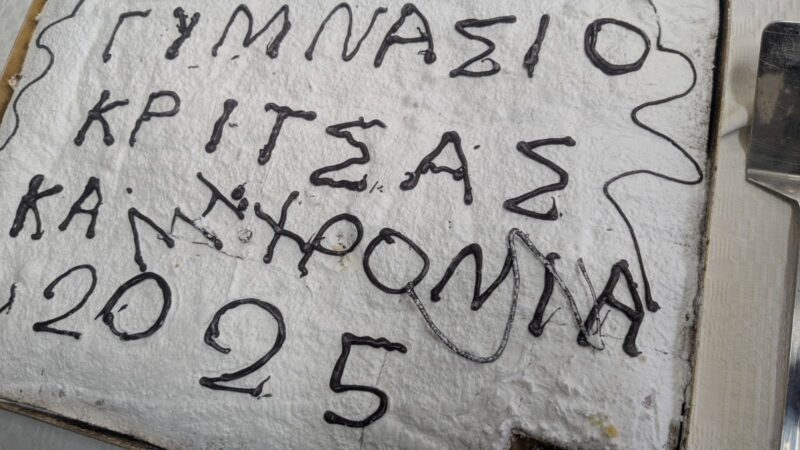 ΓΥΜΝΑΣΙΟ
ΚΡΙΤΣΑΣ
ΚΑΛΗ ΧΡΟΝΙΑ
2025